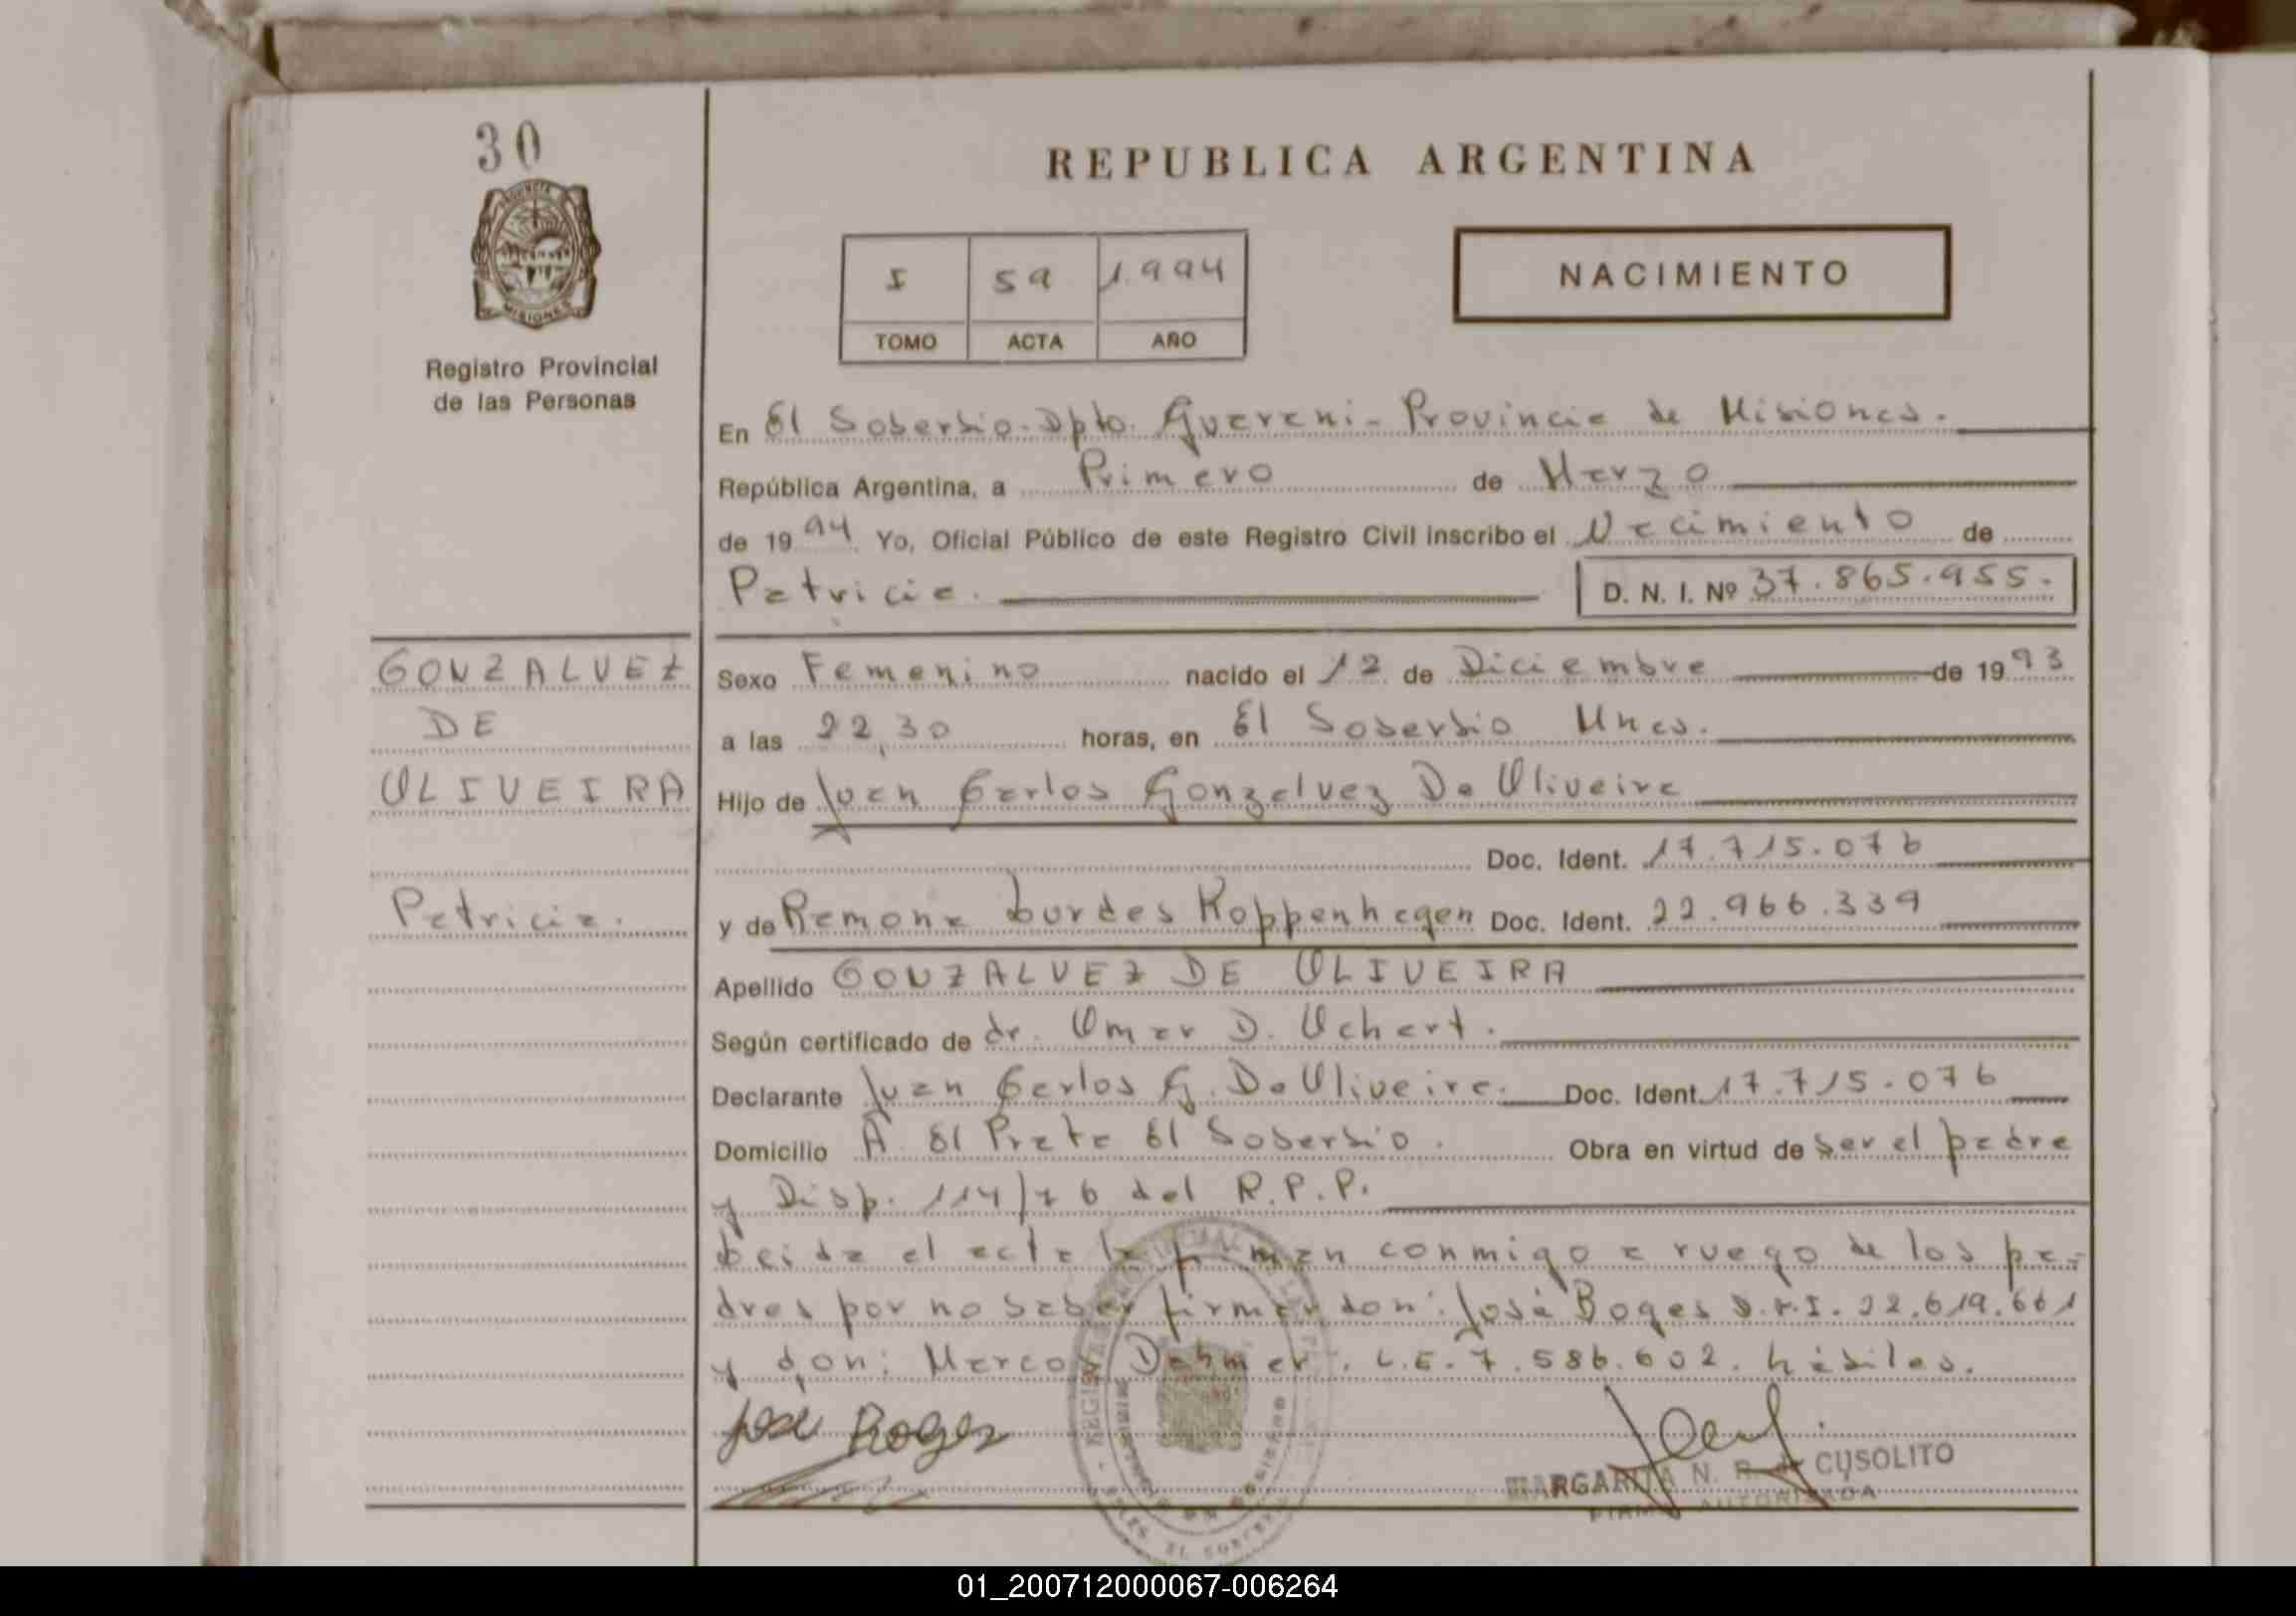 30
REPUBLICA ARGENTINA
MISIONES
I 59 1.994
TOMO ACTA AÑO
NACIMIENTO
Registro Provincial
de las Personas
En El Soberbio-Dpto. Guarani-Provincia de Misiones.
República Argentina, a Primero de Marzo
de 1994 Yo, Oficial Público de este Registro Civil inscribo el Nacimiento de
Patricia.
D. N. I. Nº 37.865.955.
GONZALVEZ
DE
OLIVEIRA
Patricia.
Sexo Femenino nacido el 12 de Diciembre de 1993
a las 22,30 horas, en El Soberbio Mnes.
Hijo de Juan Carlos Gonzalvez De Oliveira
Doc. Ident. 17.715.076
y de Ramona Lurdes Koppenhagen Doc. Ident. 22.966.339
Apellido GONZALVEZ DE OLIVEIRA
Según certificado de dr. Omar D. Ochart.
Declarante Juan Carlos G. De Oliveira. Doc. Ident. 17.715.076
Domicilio A. El Prata El Soberbio. Obra en virtud de ser el padre
y Disp. 114/76 del R.P.P.
Leida el acta la firman conmigo a ruego de los pa-
dres por no saber firmar don: José Boges D.N.I. 22.619.661
y don: Marcos Dahmer. L.E. 7.586.602. hábiles.
Jose Boges
MARGARITA N. R. de CUSOLITO
FIRMA AUTORIZADA
01_200712000067-006264